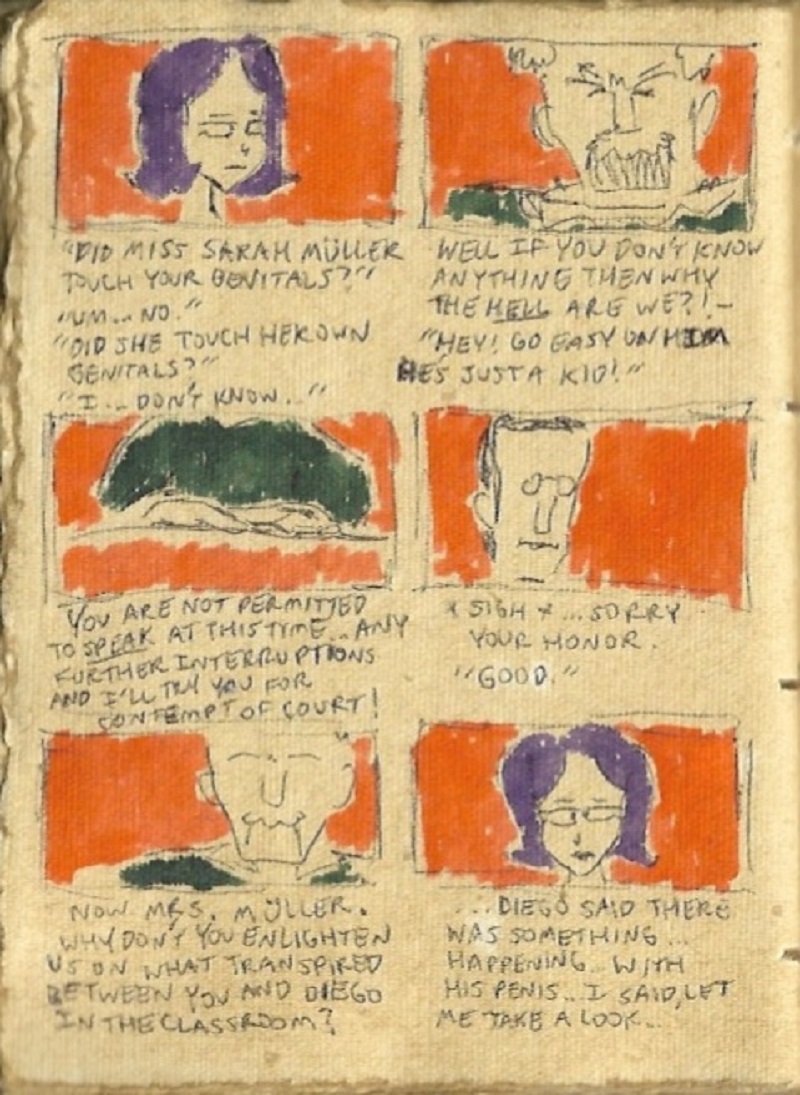 "DID MISS SARAH MÜLLER
TOUCH YOUR GENITALS?"
"UM... NO."
"DID SHE TOUCH HER OWN
GENITALS?"
"I... DON'T KNOW..."
WELL IF YOU DON'T KNOW
ANYTHING THEN WHY
THE HELL ARE WE?!-
"HEY! GO EASY ON HIM
HE'S JUST A KID!"
YOU ARE NOT PERMITTED
TO SPEAK AT THIS TIME... ANY
FURTHER INTERRUPTIONS
AND I'LL TRY YOU FOR
CONTEMPT OF COURT!
* SIGH * ... SORRY
YOUR HONOR.
"GOOD."
NOW MRS. MÜLLER.
WHY DON'T YOU ENLIGHTEN
US ON WHAT TRANSPIRED
BETWEEN YOU AND DIEGO
IN THE CLASSROOM?
...DIEGO SAID THERE
WAS SOMETHING...
HAPPENING... WITH
HIS PENIS... I SAID, LET
ME TAKE A LOOK...